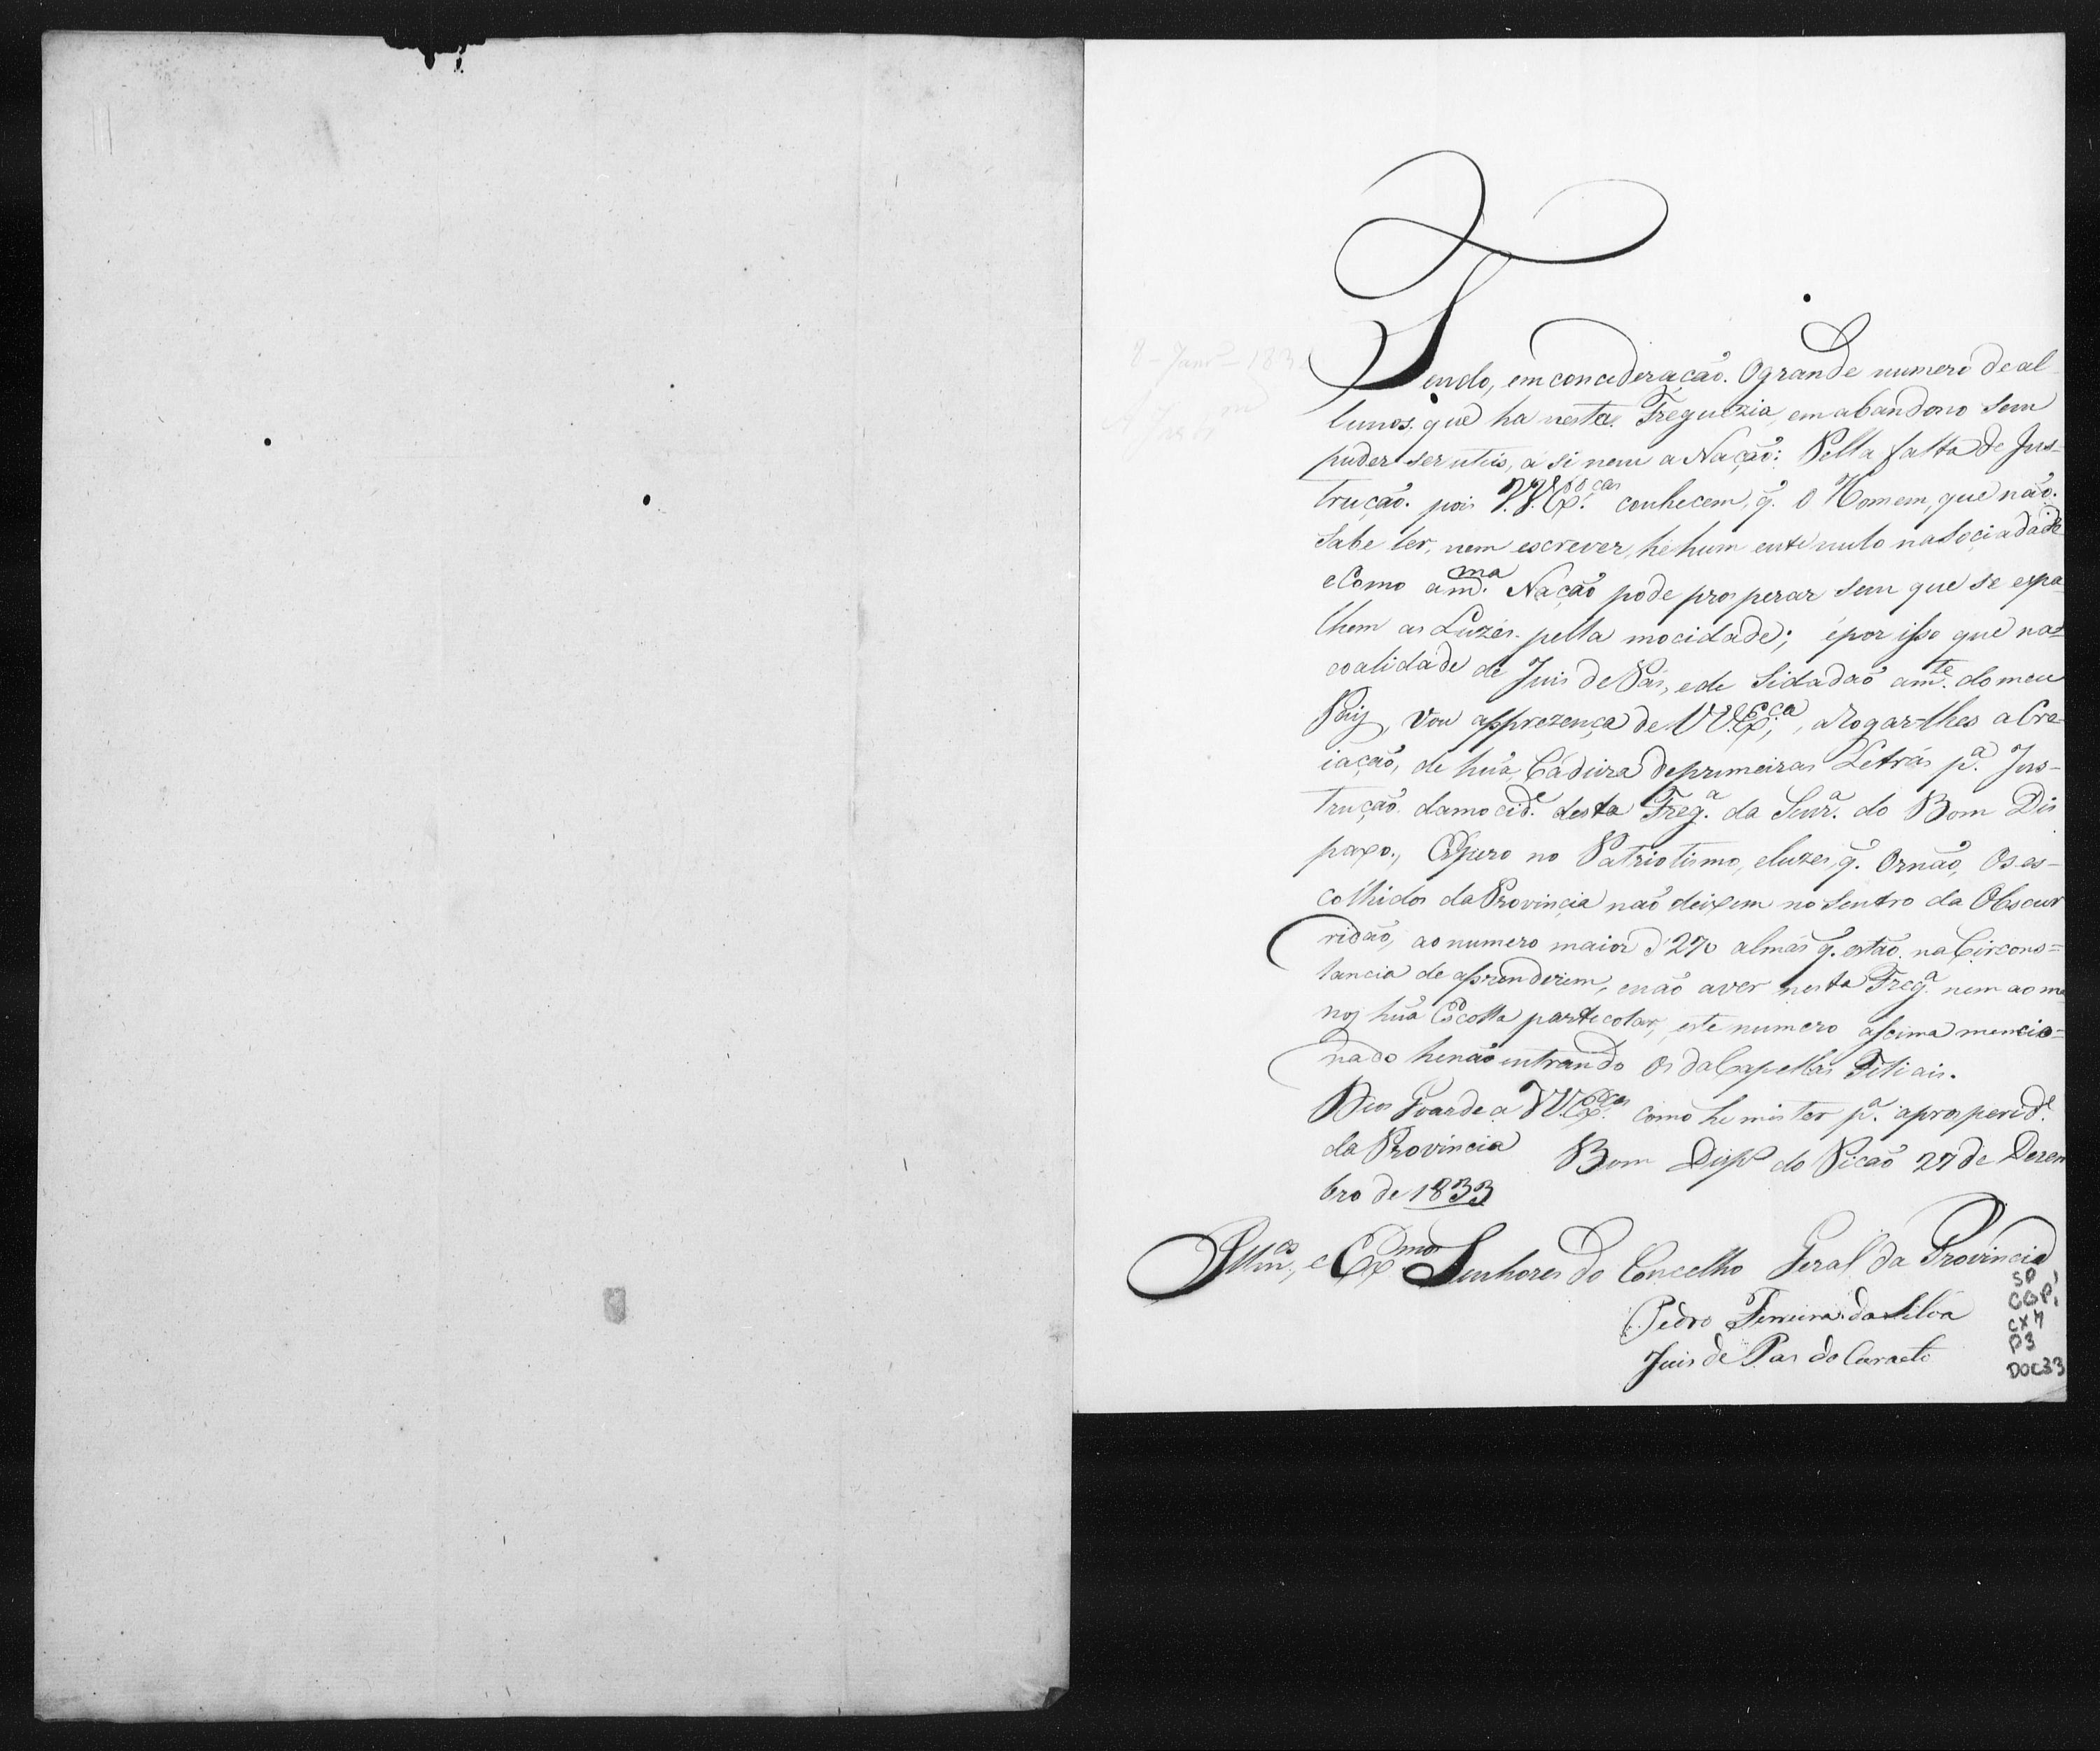 Tendo, em concideração. O grande numero de al
lunos. que ha nesta Freguezia, em abandono sem
puder ser uteis, a si nem a Nação: Pella falta de Jns-
trução. pois V.V.Ex.cas conhecem, q. O Homem, que não.
sabe ler, nem escrever, he hum ente nulo na Sociadade
e Como a m.ma Nação pode prosperar sem que se espa
lhem as Luzes. pella mocidade; é por isso que na=
coalidade de Juis de Pas, e de Sidadão am.te do meu
Paiz, vou apprezença de VV.Ex.ca, a Rogar-lhes a Cre-
iação, de húa Cadeira de primeiras Letras p.a Jns-
trução. da mocid.e desta Freg.a da Senr.a do Bom Dis
paxo., Espero no Patriotismo, e luzes, q. Ornão, Os es-
colhidos da Provincia não deixem no Sentro da Obscur
ridão, ao numero maior d'270 almas q. estão. na Circons=
tancia de apprenderem, e não aver nesta Freg.a nem ao me
nos húa Escolla partecolar, este numero assima mencio=
nado he não entrando Os da Capellas Filiais.
Deos Guarde a VV.Ex.cas como he mister p.a a prosperid.e
da Provincia Bom Disp.o do Picão 27 de Dezem
bro de 1833
Illm.os, e Ex.mos Senhores do Concelho Geral da Provincia
Pedro Ferreira da Silva
Juis de Pas do Curato
SP
CGP1
CX4
P3
DOC33